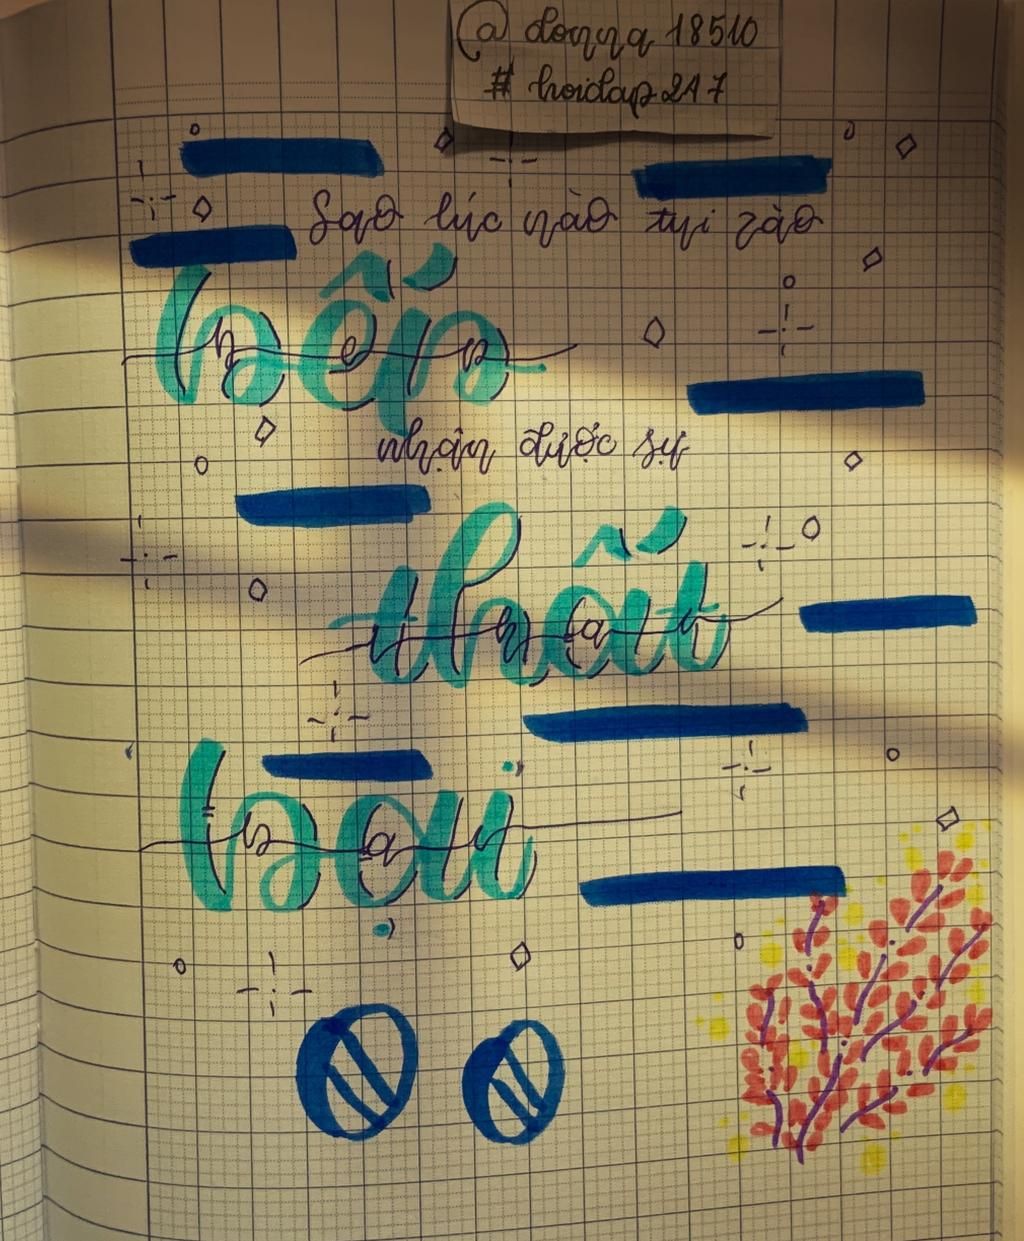 @ donna 18510
# hoidap247
Sao lúc nào tui vào
bếp
nhận được sự
thất
bại